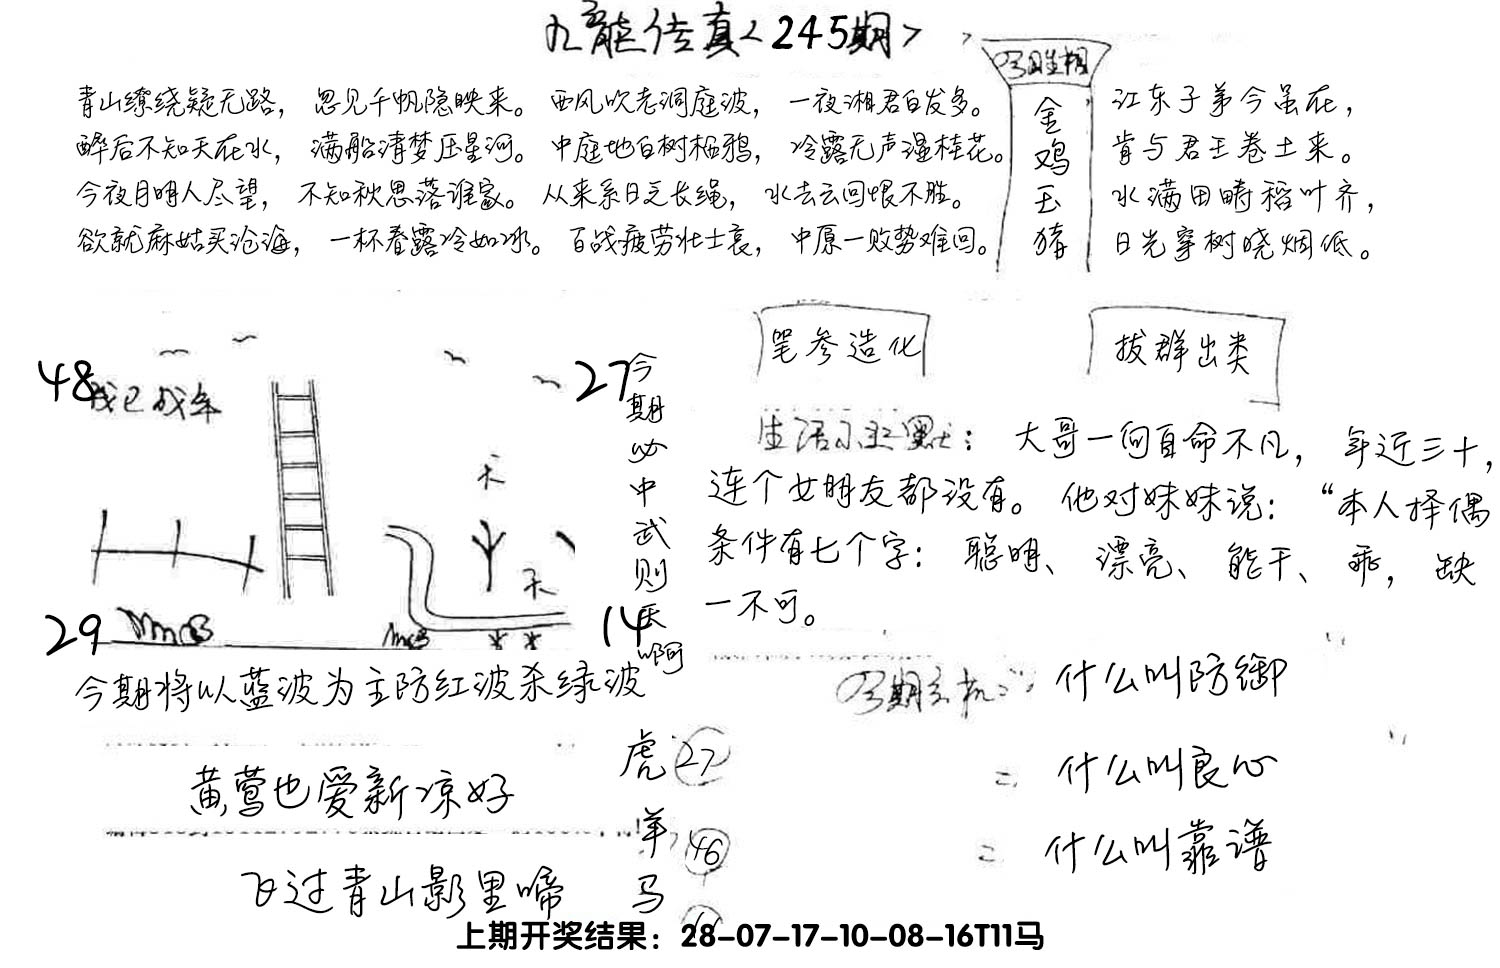 九龙传真<245期>
今期生相
金鸡玉猪
青山缭绕疑无路，忽见千帆隐映来。西风吹老洞庭波，一夜湘君白发多。
醉后不知天在水，满船清梦压星河。中庭地白树栖鸦，冷露无声湿桂花。
今夜月明人尽望，不知秋思落谁家。从来系日乏长绳，水去云回恨不胜。
欲就麻姑买沧海，一杯春露冷如冰。百战疲劳壮士哀，中原一败势难回。
江东子弟今虽在，
肯与君王卷土来。
水满田畴稻叶齐，
日光穿树晓烟低。
48
27
29
14
天
天
今期必中武则天啊
今期将以蓝波为主防红波杀绿波
黄莺也爱新凉好
飞过青山影里啼
虎 27
羊 46
马
笔参造化
拔群出类
生活小幽默：大哥一向自命不凡，年近三十，
连个女朋友都没有。他对妹妹说：“本人择偶
条件有七个字：聪明、漂亮、能干、乖，缺
一不可。
今期玄机：什么叫防御
= 什么叫良心
= 什么叫靠谱
上期开奖结果：28-07-17-10-08-16T11马